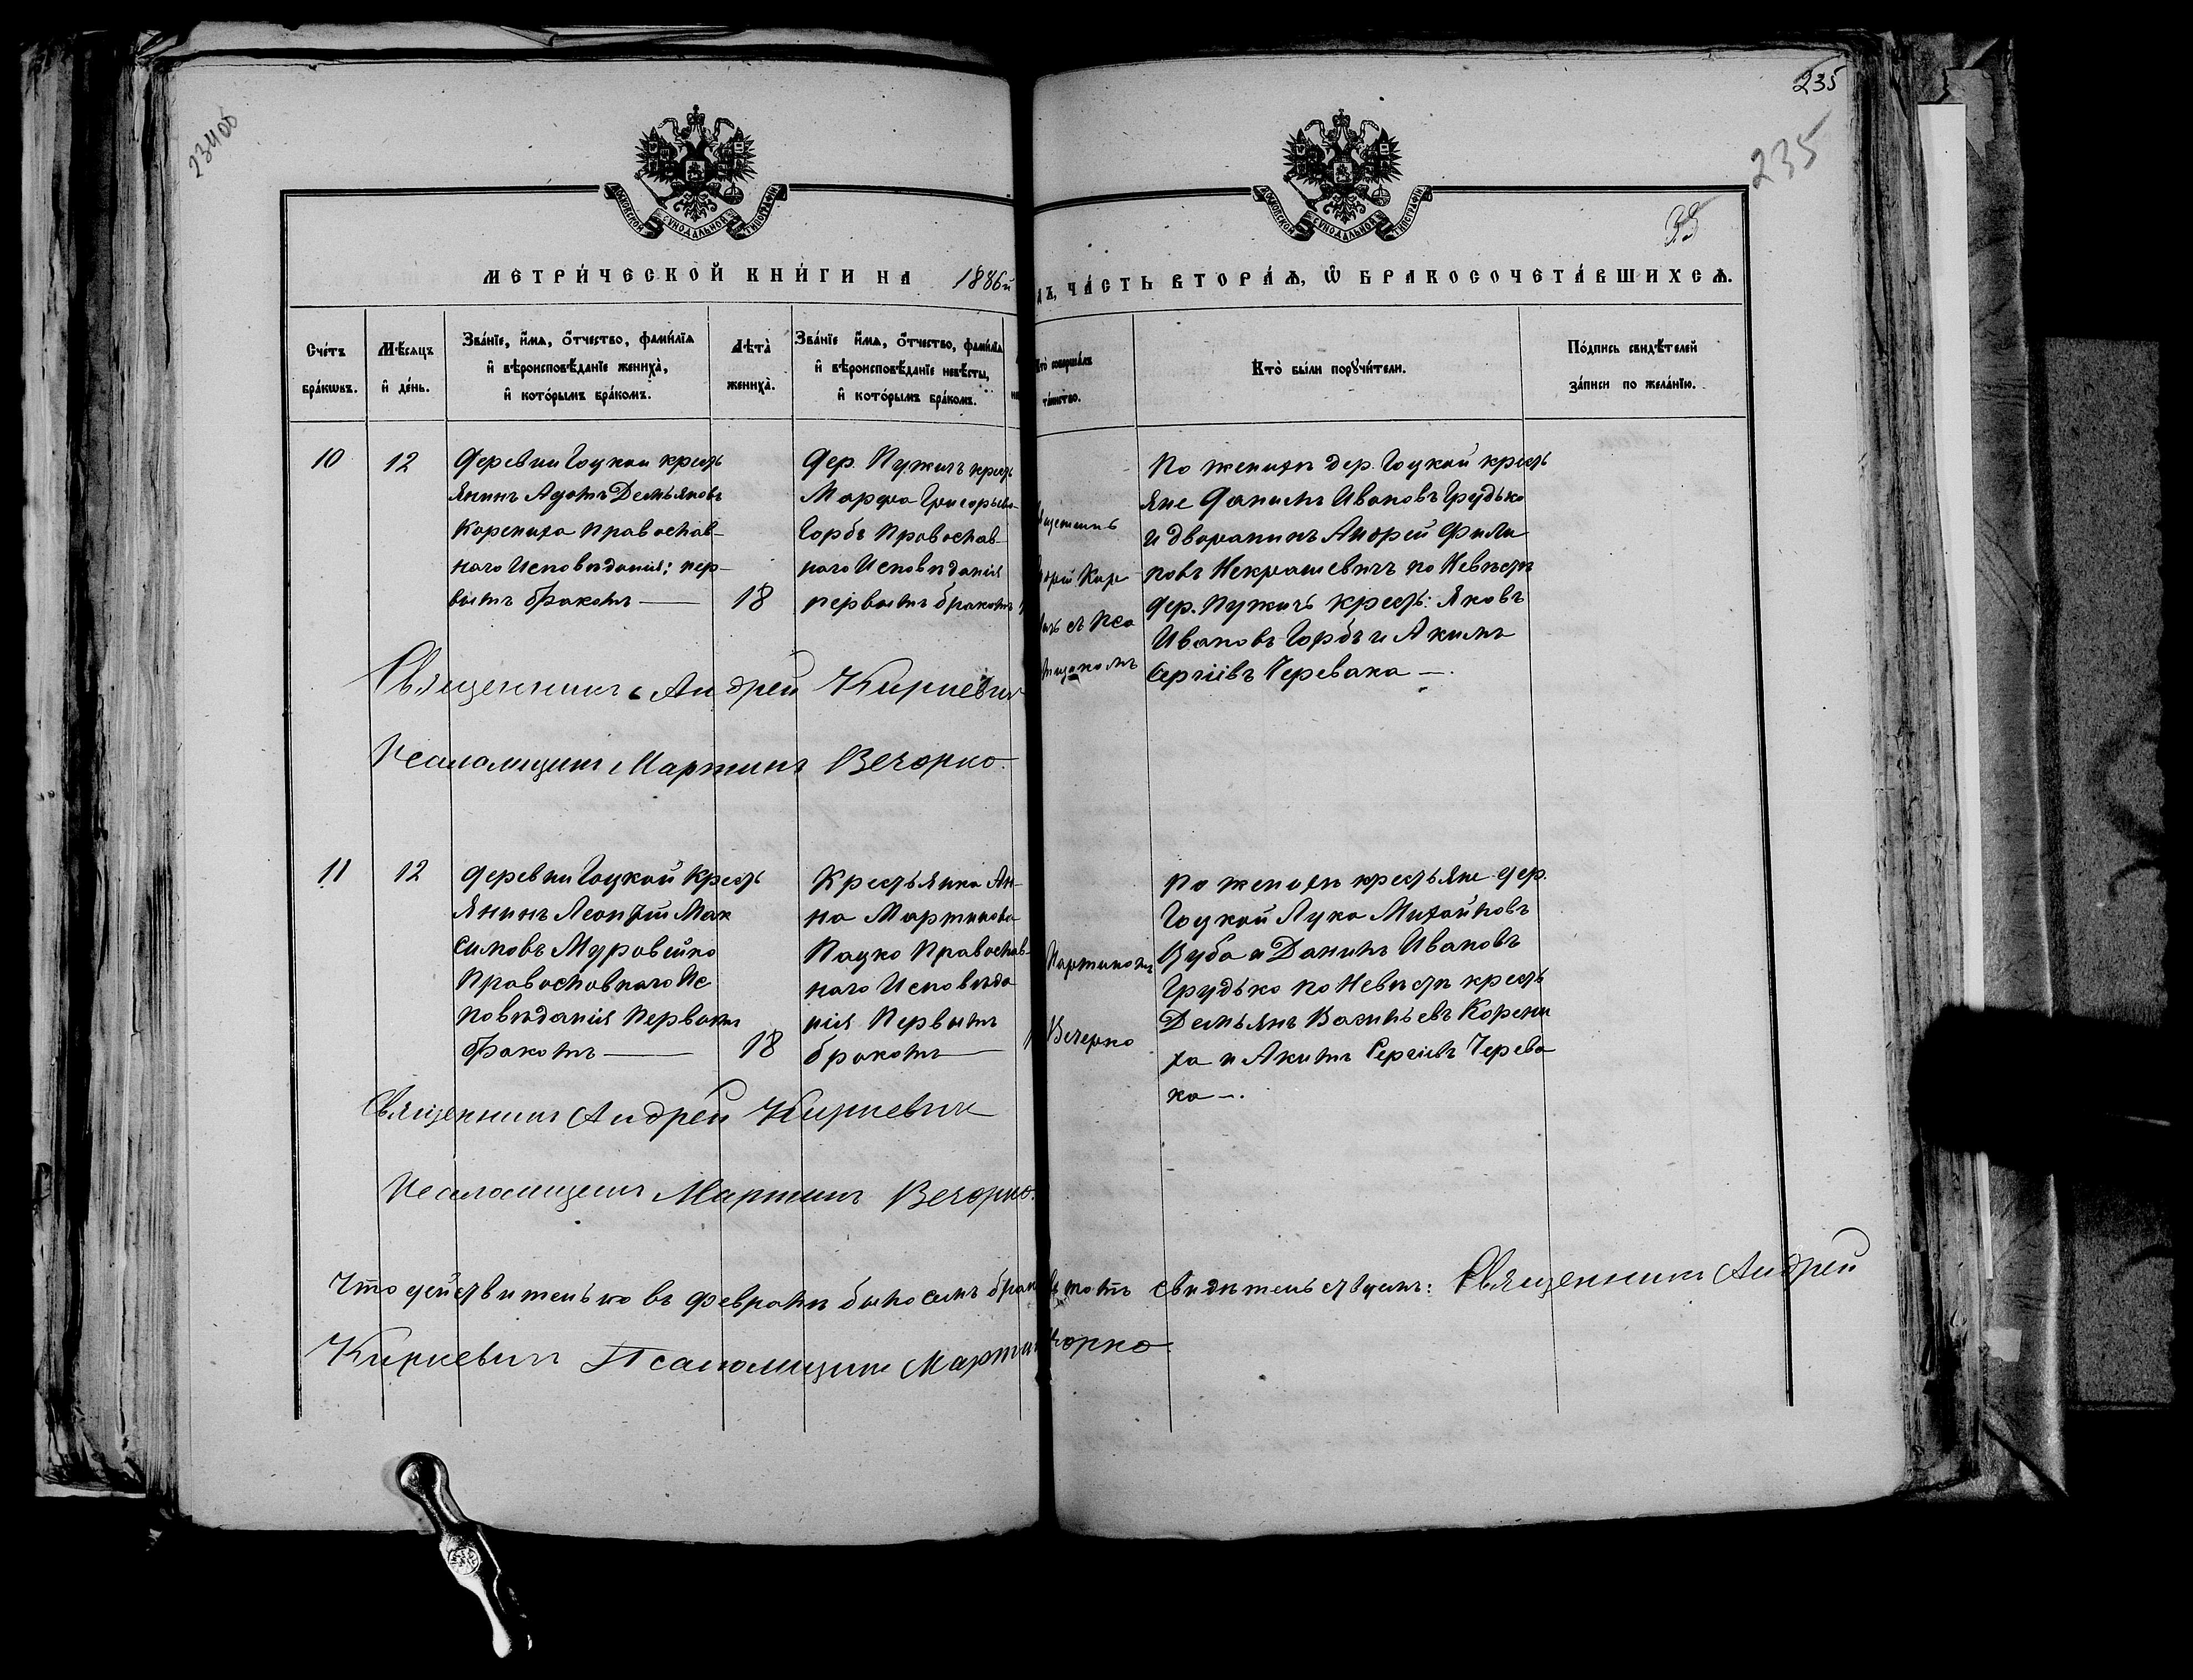 235
235
234об
33
МОСКОВСКОЙ СѴНОДАЛЬНОЙ ТИПОГРАФІИ
МОСКОВСКОЙ СѴНОДАЛЬНОЙ ТИПОГРАФІИ
МЕТРИ́ЧЕСКОЙ КНИ́ГИ НА 1886й
ДЪ, ЧА́СТЬ ВТОРА́Ѧ, Ѡ БРАКОСОЧЕТА́ВШИХСѦ.
Сче́тъ
бра́кѡвъ.
Мѣ́сяцъ
и де́нь.
Зва́нїе, и́мя, о́тчество, фами́лїа
и вѣроисповѣ́данїе жениха̀,
и кото́рымъ бра́комъ.
Лѣта̀
жениха̀.
Зва́нїе и́мя, о́тчество, фами́лїа
и вѣроисповѣ́данїе невѣ́сты,
и кото́рымъ бра́комъ.
Кто̀ соверша́лъ
та́инство.
Кто̀ бы́ли порꙋчи́тели.
По́дпись свидѣ́телей
за́писи по жела́нїю.
10
12
Деревни Гоцкой кресть
янинъ Адамъ Демьяновъ
Корениха Православ-
наго Исповѣданія; пер-
вымъ бракомъ —
18
Дер. Пужичъ кресть
Марфа Григорьева
Горбъ Православ-
наго Исповѣданія
первымъ бракомъ
щенникъ
дрей Кир
ичъ съ Пса
мщикомъ
По женихѣ дер. Гоцкой кресть
яне Данилъ Ивановъ Грудько
и дворанинъ Андрей Фили
повъ Некрашевичъ по Невѣстѣ
дер. Пужичъ кресть: Яковъ
Ивановъ Горбъ и Акимъ
Сергіевъ Черевака —.
Священникъ Андрей Киркевич
Псаломщикъ Мартинъ Вечорко.
11
12
Деревни Гоцкой Кресть
янинъ Леонтій Мак
симовъ Муровейко
Православнаго Ис
повѣданія Первымъ
бракомъ —
18
Крестьянка Ан-
на Мартинова
Пацко Православ-
наго Исповѣда
нія Первымъ
бракомъ —
Мартиномъ
Вечерко
По женихѣ крестьяне дер.
Гоцкой Лука Михайловъ
Зуба и Данилъ Ивановъ
Грудько по Невѣстѣ кресть
Демьянъ Васильевъ Корени
ха и Акимъ Сергіевъ Черева
ка —.
Священникъ Андрей Киркевич
Псаломщикъ Мартинъ Вечорко.
Что дѣйствительно въ февралѣ было семъ браковъ томъ свидѣтельствуемъ: Священникъ Андрей
Киркевичъ Псаломщикъ Мартин чорко